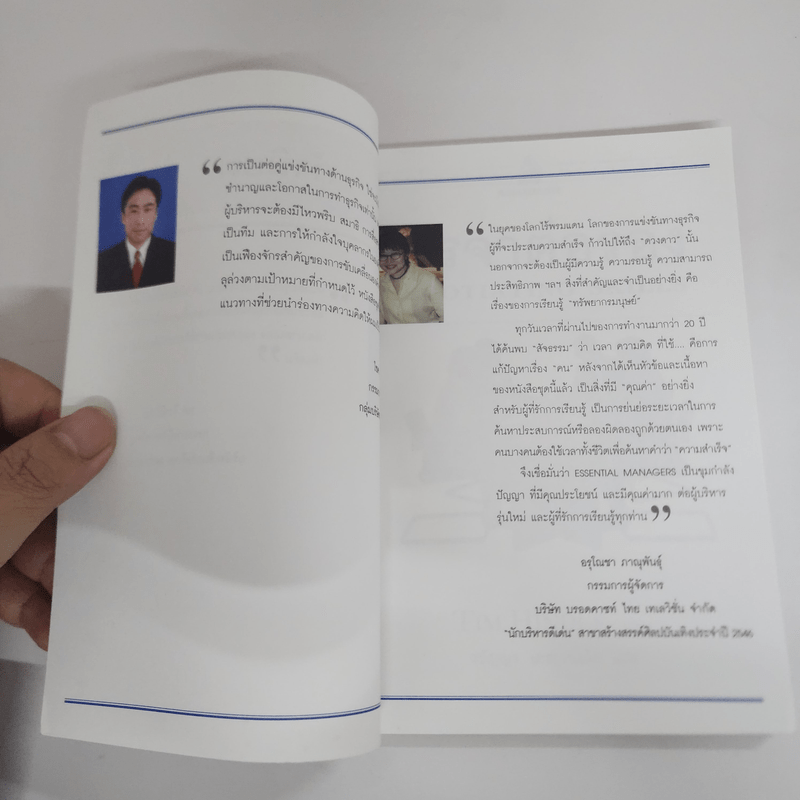 “ การเป็นต่อคู่แข่งขันทางด้านธุรกิจ
ชำนาญและโอกาสในการทำธุรกิจเท่านั้น
ผู้บริหารจะต้องมีไหวพริบ สมาธิ
เป็นทีม และการให้กำลังใจบุคลากร
เป็นเฟืองจักรสำคัญของการขับเคลื่อน
ลุล่วงตามเป้าหมายที่กำหนดไว้
แนวทางที่ช่วยนำร่องทางความคิด
“ ในยุคของโลกไร้พรมแดน โลกของการแข่งขันทางธุรกิจ
ผู้ที่จะประสบความสำเร็จ ก้าวไปให้ถึง “ดวงดาว” นั้น
นอกจากจะต้องเป็นผู้มีความรู้ ความรอบรู้ ความสามารถ
ประสิทธิภาพ ฯลฯ สิ่งที่สำคัญและจำเป็นอย่างยิ่ง คือ
เรื่องของการเรียนรู้ “ทรัพยากรมนุษย์”
ทุกวันเวลาที่ผ่านไปของการทำงานมากว่า 20 ปี
ได้ค้นพบ “สัจธรรม” ว่า เวลา ความคิด ที่ใช้.... คือการ
แก้ปัญหาเรื่อง “คน” หลังจากได้เห็นหัวข้อและเนื้อหา
ของหนังสือชุดนี้แล้ว เป็นสิ่งที่มี “คุณค่า” อย่างยิ่ง
สำหรับผู้ที่รักการเรียนรู้ เป็นการย่นย่อระยะเวลาในการ
ค้นหาประสบการณ์หรือลองผิดลองถูกด้วยตนเอง เพราะ
คนบางคนต้องใช้เวลาทั้งชีวิตเพื่อค้นหาคำว่า “ความสำเร็จ”
จึงเชื่อมั่นว่า ESSENTIAL MANAGERS เป็นขุมกำลัง
ปัญญา ที่มีคุณประโยชน์ และมีคุณค่ามาก ต่อผู้บริหาร
รุ่นใหม่ และผู้ที่รักการเรียนรู้ทุกท่าน ”
อรุโณชา ภาณุพันธุ์
กรรมการผู้จัดการ
บริษัท บรอดคาซท์ ไทย เทเลวิชั่น จำกัด
“นักบริหารดีเด่น” สาขาสร้างสรรค์ศิลปบันเทิงประจำปี 2546